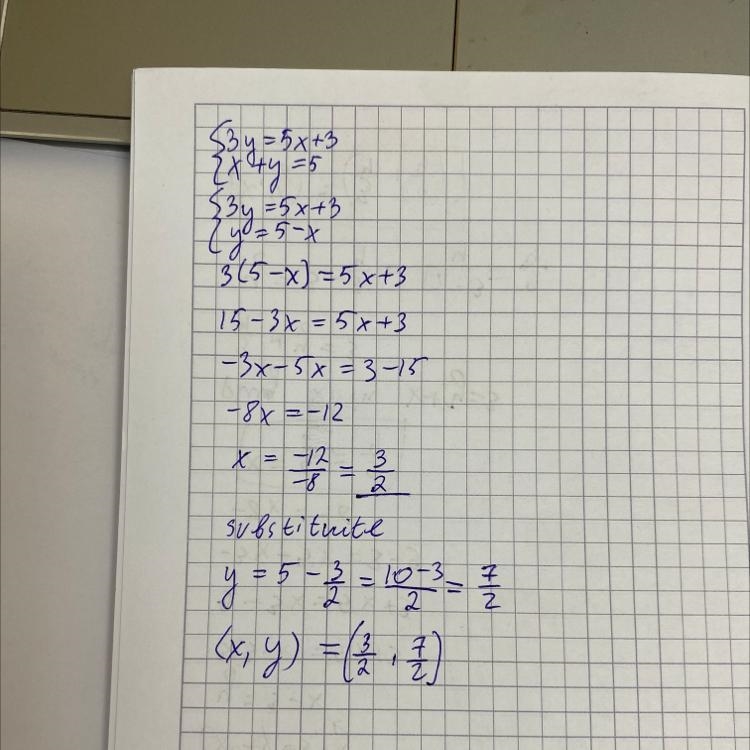 {3y = 5x+3
{x + y = 5
{3y = 5x+3
{y = 5 - x
3(5 - x) = 5x+3
15 - 3x = 5x+3
-3x - 5x = 3 - 15
-8x = -12
x = -12/-8 = 3/2
substituite
y = 5 - 3/2 = 10-3/2 = 7/2
(x, y) = (3/2, 7/2)